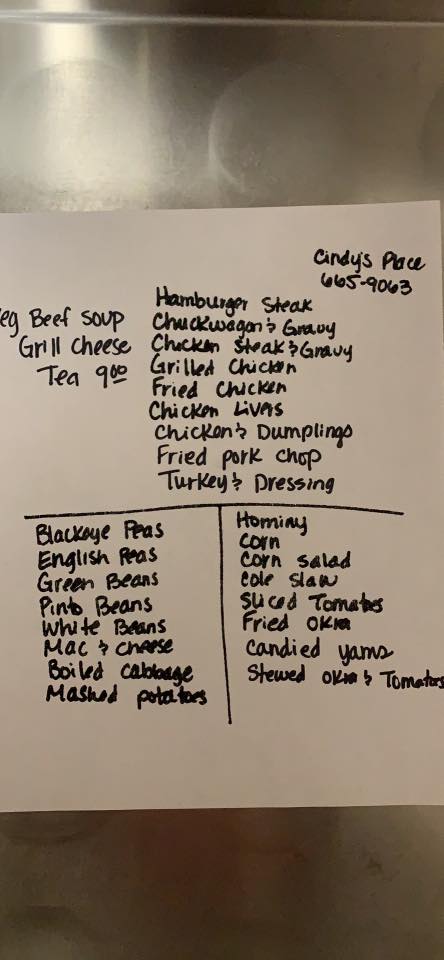 Cindy's Place
665-9063
eg Beef soup
Grill cheese
Tea 9.00
Hamburger Steak
Chuckwagon & Gravy
Chicken Steak & Gravy
Grilled Chicken
Fried Chicken
Chicken Livers
Chicken & Dumplings
Fried pork chop
Turkey & Dressing
Blackeye Peas
English Peas
Green Beans
Pinto Beans
White Beans
Mac & cheese
Boiled cabbage
Mashed potatoes
Hominy
corn
corn salad
cole slaw
Sliced Tomatoes
Fried okra
candied yams
Stewed okra & Tomatoes